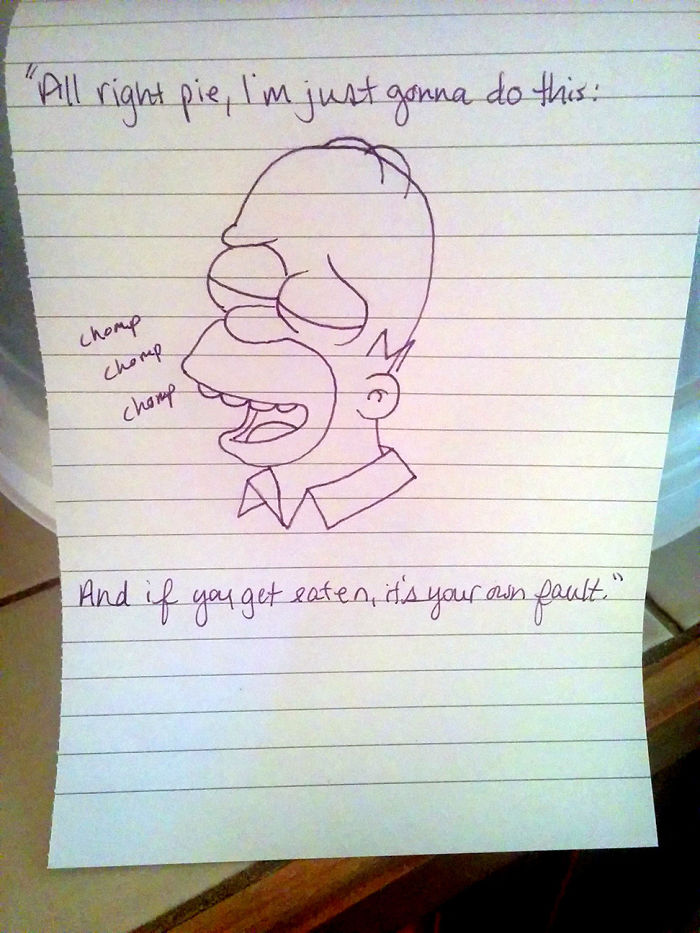 "All right pie, I'm just gonna do this:
chomp
chomp
chomp
And if you get eaten, it's your own fault."